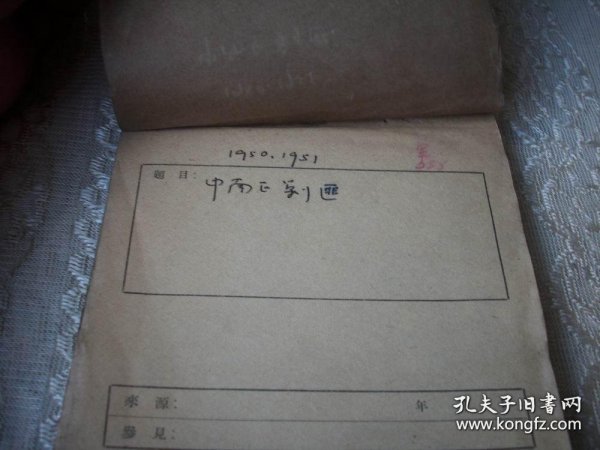 1950.1951
題目：
中南区剿匪
來源： 年
參見：
孔夫子旧書网
www.kongfz.com